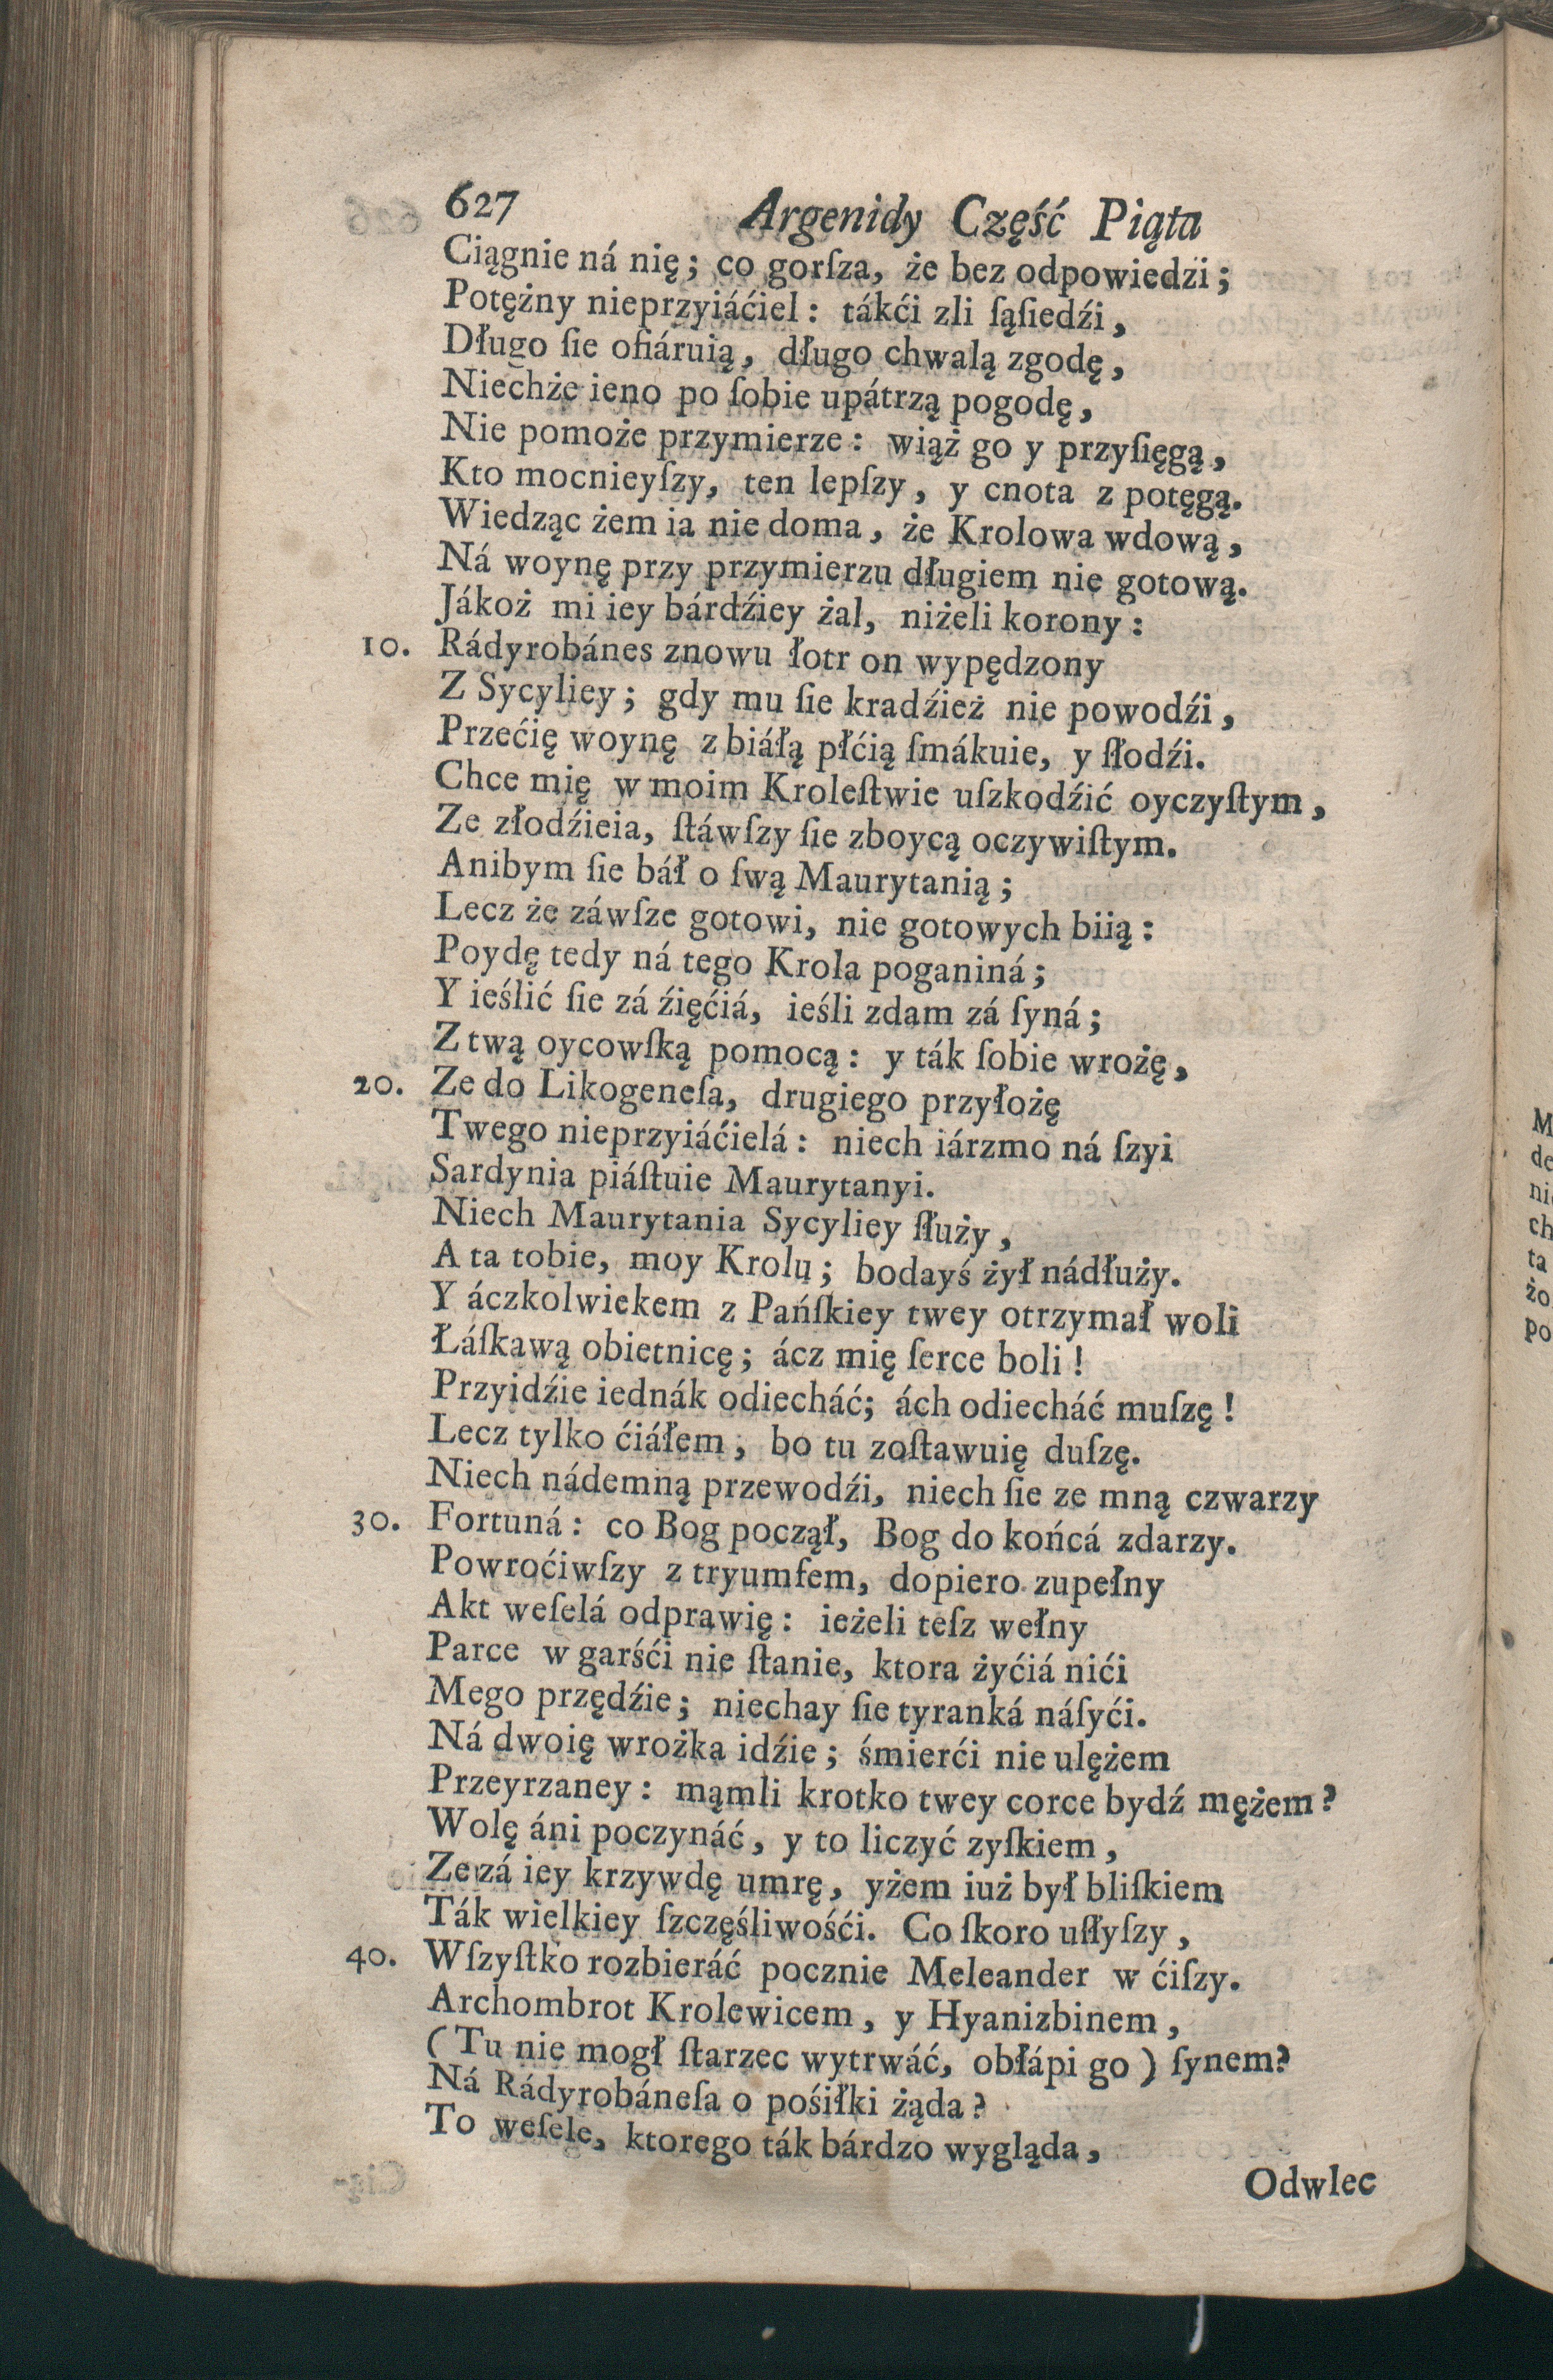 627 Argenidy Część Piąta
Ciągnie ná nię; co gorſza, że bez odpowiedźi;
Potężny nieprzyiáćiel: tákći zli ſąſiedźi,
Długo ſie ofiáruią, długo chwalą zgodę,
Niechże ieno po ſobie upátrzą pogodę,
Nie pomoże przymierze: wiąż go y przyſięgą,
Kto mocnieyſzy, ten lepſzy, y cnota z potęgą.
Wiedząc żem ia nie doma, że Krolowa wdową,
Ná woynę przy przymierzu długiem nie gotową.
Jákoż mi iey bárdźiey żal, niżeli korony:
10. Rádyrobánes znowu łotr on wypędzony
Z Sycyliey; gdy mu ſie kradźież nie powodźi,
Przećię woynę z białą płćią ſmákuie, y ſłodźi.
Chce mię w moim Kroleſtwie uſzkodźić oyczyſtym,
Ze złodźieia, ſtáwſzy ſie zboycą oczywiſtym.
Anibym ſie báł o ſwą Maurytanią;
Lecz że záwſze gotowi, nie gotowych biią:
Poydę tedy ná tego Krola poganiná;
Y ieślić ſie zá źięćiá, ieśli zdam zá ſyná;
Z twą oycowſką pomocą: y ták ſobie wrożę,
20. Ze do Likogeneſa, drugiego przyłożę
Twego nieprzyiáćielá: niech iárzmo ná ſzyi
Sardynia piáſtuie Maurytanyi.
Niech Maurytania Sycyliey ſłuży,
A ta tobie, moy Krolu; bodayś żył nádłuży.
Y áczkolwiekem z Pańſkiey twey otrzymał woli
Łáſkawą obietnicę; ácz mię ſerce boli!
Przyidźie iednák odiecháć; ách odiecháć muſzę!
Lecz tylko ćiáłem, bo tu zoſtawuię duſzę.
Niech nádemną przewodźi, niech ſie ze mną czwarzy
30. Fortuná: co Bog począł, Bog do końcá zdarzy.
Powroćiwſzy z tryumfem, dopiero zupełny
Akt weſelá odprawię: ieżeli teſz wełny
Parce w garśći nie ſtanie, ktora żyćiá nići
Mego przędźie; niechay ſie tyranká náſyći.
Ná dwoię wrożka idźie; śmierći nie ulężem
Przeyrzaney: mąmli krotko twey corce bydź mężem?
Wolę áni poczynáć, y to liczyć zyſkiem,
Ze zá iey krzywdę umrę, yżem iuż był bliſkiem
Ták wielkiey ſzczęśliwośći. Co ſkoro uſłyſzy,
40. Wſzyſtko rozbieráć pocznie Meleander w ćiſzy.
Archombrot Krolewicem, y Hyanizbinem,
(Tu nie mogł ſtarzec wytrwáć, obłápi go) ſynem?
Ná Rádyrobáneſa o pośiłki żąda?
To weſele, ktorego ták bárdzo wygląda,
Odwlec